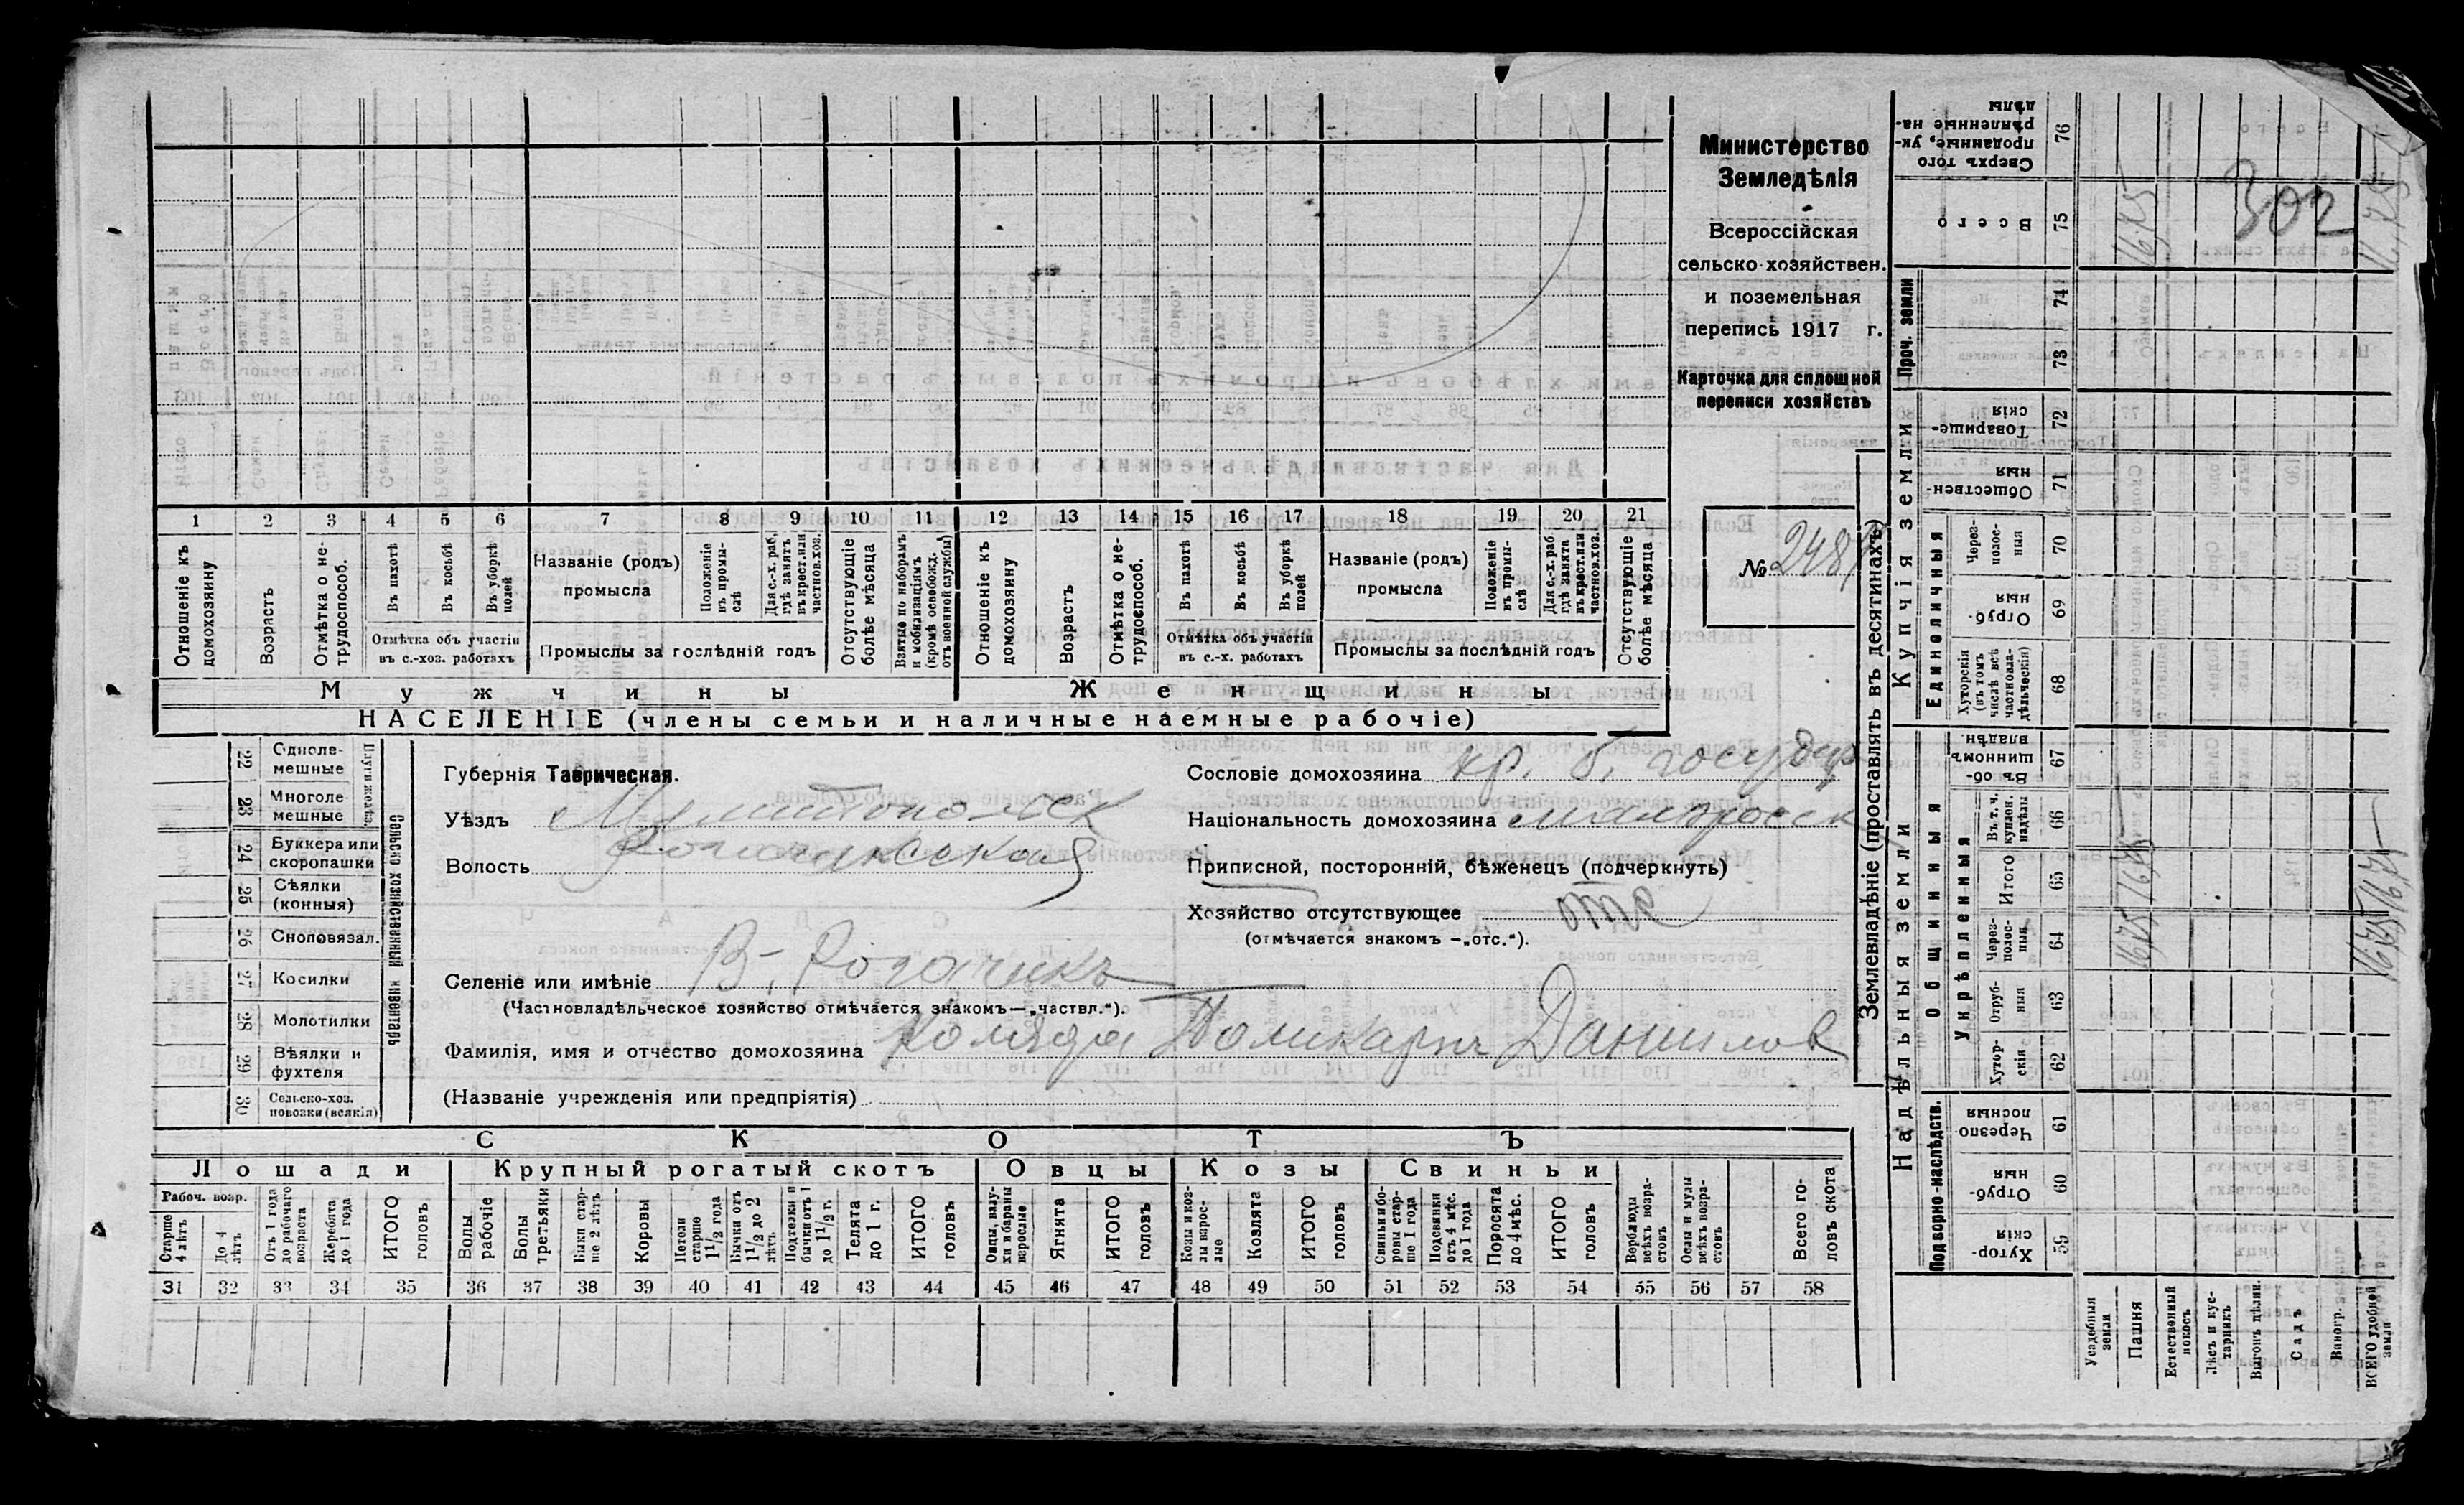 Министерство
Земледѣлія
Всероссійская
сельско-хозяйствен.
и поземельная
перепись 1917 г.
Карточка для сплошной
переписи хозяйствъ
№ 248
302
1 2 3 4 5 6 7 8 9 10 11 12 13 14 15 16 17 18 19 20 21
Отношеніе къ домохозяину
Возрастъ
Отмѣтка о не-трудоспособ.
Въ пахотѣ
Въ косьбѣ
Въ уборкѣ полей
Отмѣтка объ участіи
въ с.-хоз. работахъ
Названіе (родъ)
промысла
Положеніе въ промы-слѣ
Для с.-х. раб. гдѣ занятъ въ крест. или частнов. хоз.
Промыслы за послѣдній годъ
Отсутствующіе болѣе мѣсяца
Взятые по наборамъ и мобилизаціямъ (кромѣ освобожд. отъ военной службы)
Отношеніе къ домохозяину
Возрастъ
Отмѣтка о не-трудоспособ.
Въ пахотѣ
Въ косьбѣ
Въ уборкѣ полей
Отмѣтка объ участіи
въ с.-х. работахъ
Названіе (родъ)
промысла
Положеніе въ промы-слѣ
Для с.-х. раб. гдѣ занята въ крест. или частнов. хоз.
Промыслы за послѣдній годъ
Отсутствующіе болѣе мѣсяца
Мужчины
Женщины
НАСЕЛЕНІЕ (члены семьи и наличные наемные рабочіе)
Сельско хозяйственный инвентарь
Плуги желѣз.
22 Одноле-мешные
23 Многоле-мешные
24 Буккера или скоропашки
25 Сѣялки (конныя)
26 Сноповязал.
27 Косилки
28 Молотилки
29 Вѣялки и фухтеля
30 Сельско-хоз. повозки (всякія)
Губернія Таврическая.
Уѣздъ Мелитопольск
Волость Рогачикская
Селеніе или имѣніе В. Рогачикъ
(Частновладѣльческое хозяйство отмѣчается знакомъ—„частвл.“).
Фамилія, имя и отчество домохозяина Коляда Поликарпъ Данилов
(Названіе учрежденія или предпріятія)
Сословіе домохозяина кр. б. государ
Національность домохозяина малоросск
Приписной, посторонній, бѣженецъ (подчеркнуть)
Хозяйство отсутствующее
(отмѣчается знакомъ —„отс.“).
СКОТЪ
Лошади
Крупный рогатый скотъ
Овцы
Козы
Свиньи
Рабоч. возр.
Старше 4 лѣтъ
До 4 лѣтъ
Отъ 1 года до рабочаго возраста
Жеребята до 1 года
ИТОГО головъ
Волы рабочіе
Волы третьяки
Быки стар-ше 2 лѣтъ
Коровы
Нетели старше 1 1/2 года
Бычки отъ 1 1/2 до 2 лѣтъ
Подтелки и бычки отъ 1 до 1 1/2 г.
Телята до 1 г.
ИТОГО головъ
Овцы, валу-хи и бараны взрослые
Ягнята
ИТОГО головъ
Козы и коз-лы взрос-лые
Козлята
ИТОГО головъ
Свиньи и бо-ровы стар-ше 1 года
Подсвинки отъ 4 мѣс. до 1 года
Поросята до 4 мѣс.
ИТОГО головъ
Верблюды всѣхъ возра-стовъ
Ослы и мулы всѣхъ возра-стовъ
Всего го-ловъ скота
31 32 33 34 35 36 37 38 39 40 41 42 43 44 45 46 47 48 49 50 51 52 53 54 55 56 57 58
Землевладѣніе (проставлять въ десятинахъ)
Надѣльныя земли
Подворно-наслѣдств.
Хутор-скія 59
Отруб-ныя 60
Черезпо-лосныя 61
Общинныя
Укрѣпленныя
Хутор-скія 62
Отруб-ныя 63
Через-полос-ныя 64
Итого 65
Въ т. ч. куплен. надѣлы 66
Въ об-щинномъ владѣн. 67
Купчія земли
Единоличныя
Хуторскія (въ томъ числѣ всѣ частновла-дѣльческія) 68
Отруб-ныя 69
Через-полос-ныя 70
Обществен-ныя 71
Товарище-скія 72
Проч. земли
73 74
Всего 75
Сверхъ того проданные, ук-рѣпленные на-дѣлы 76
Усадебныя земли
Пашня 16,75 16,75 16,75
Естественный покосъ
Лѣсъ и кус-тарникъ
Выгонъ цѣлин.
Садъ
Виногр.
ВСЕГО удобной земли 16,75 16,75 16,75